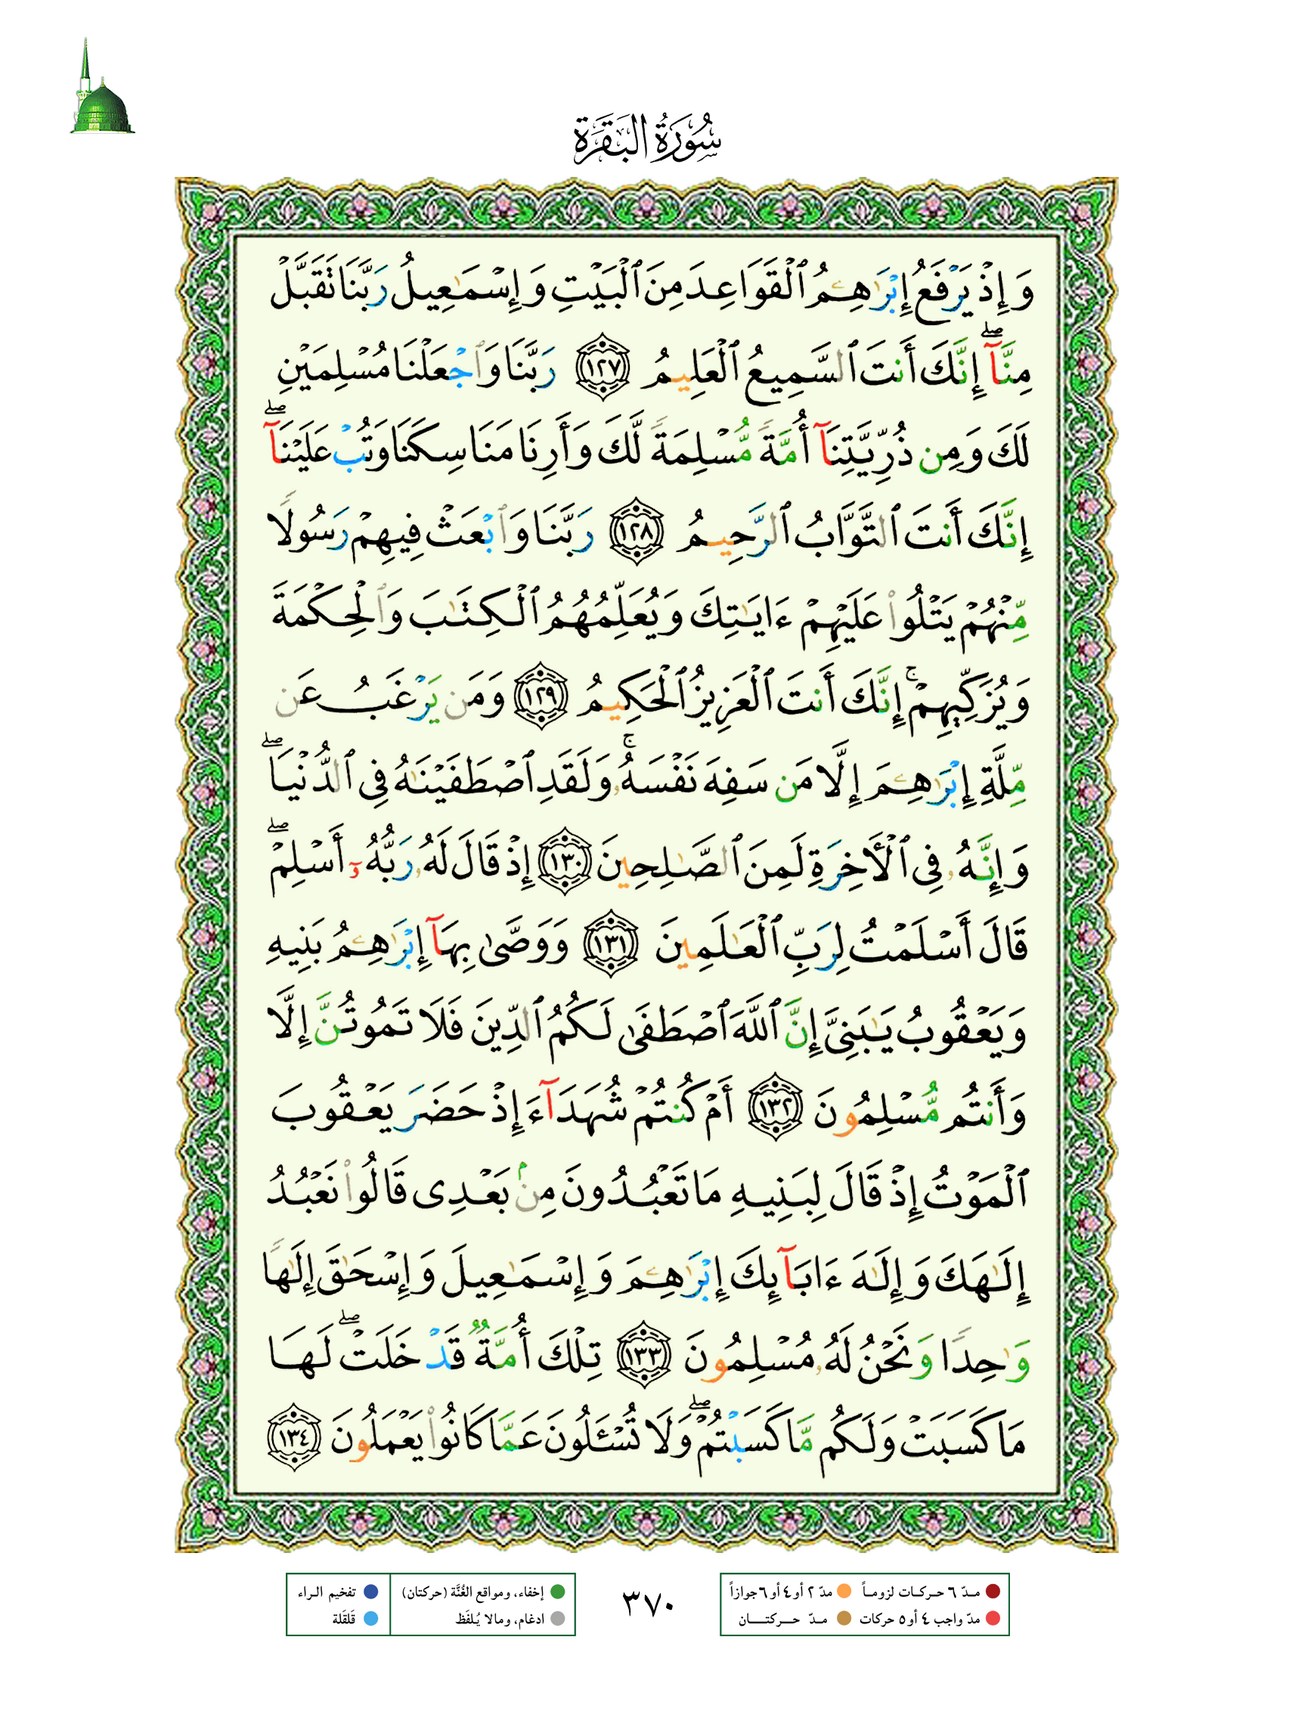 سُورَةُ البَقَرَة
وَإِذْ يَرْفَعُ إِبْرَٰهِـۧمُ ٱلْقَوَاعِدَ مِنَ ٱلْبَيْتِ وَإِسْمَـٰعِيلُ رَبَّنَا تَقَبَّلْ
مِنَّآ ۖ إِنَّكَ أَنتَ ٱلسَّمِيعُ ٱلْعَلِيمُ ١٢٧ رَبَّنَا وَٱجْعَلْنَا مُسْلِمَيْنِ
لَكَ وَمِن ذُرِّيَّتِنَآ أُمَّةً مُّسْلِمَةً لَّكَ وَأَرِنَا مَنَاسِكَنَا وَتُبْ عَلَيْنَآ ۖ
إِنَّكَ أَنتَ ٱلتَّوَّابُ ٱلرَّحِيمُ ١٢٨ رَبَّنَا وَٱبْعَثْ فِيهِمْ رَسُولًا
مِّنْهُمْ يَتْلُوا۟ عَلَيْهِمْ ءَايَـٰتِكَ وَيُعَلِّمُهُمُ ٱلْكِتَـٰبَ وَٱلْحِكْمَةَ
وَيُزَكِّيهِمْ ۚ إِنَّكَ أَنتَ ٱلْعَزِيزُ ٱلْحَكِيمُ ١٢٩ وَمَن يَرْغَبُ عَن
مِّلَّةِ إِبْرَٰهِـۧمَ إِلَّا مَن سَفِهَ نَفْسَهُۥ ۚ وَلَقَدِ ٱصْطَفَيْنَـٰهُ فِى ٱلدُّنْيَا ۖ
وَإِنَّهُۥ فِى ٱلْأَخِرَةِ لَمِنَ ٱلصَّـٰلِحِينَ ١٣٠ إِذْ قَالَ لَهُۥ رَبُّهُۥٓ أَسْلِمْ ۖ
قَالَ أَسْلَمْتُ لِرَبِّ ٱلْعَـٰلَمِينَ ١٣١ وَوَصَّىٰ بِهَآ إِبْرَٰهِـۧمُ بَنِيهِ
وَيَعْقُوبُ يَـٰبَنِىَّ إِنَّ ٱللَّهَ ٱصْطَفَىٰ لَكُمُ ٱلدِّينَ فَلَا تَمُوتُنَّ إِلَّا
وَأَنتُم مُّسْلِمُونَ ١٣٢ أَمْ كُنتُمْ شُهَدَآءَ إِذْ حَضَرَ يَعْقُوبَ
ٱلْمَوْتُ إِذْ قَالَ لِبَنِيهِ مَا تَعْبُدُونَ مِنۢ بَعْدِى قَالُوا۟ نَعْبُدُ
إِلَـٰهَكَ وَإِلَـٰهَ ءَابَآئِكَ إِبْرَٰهِـۧمَ وَإِسْمَـٰعِيلَ وَإِسْحَـٰقَ إِلَـٰهًا
وَٰحِدًا وَنَحْنُ لَهُۥ مُسْلِمُونَ ١٣٣ تِلْكَ أُمَّةٌ قَدْ خَلَتْ ۖ لَهَا
مَا كَسَبَتْ وَلَكُم مَّا كَسَبْتُمْ ۖ وَلَا تُسْـَٔلُونَ عَمَّا كَانُوا۟ يَعْمَلُونَ ١٣٤
مـدّ ٦ حـركـات لزومـاً مدّ ٢ أو ٤ أو ٦ جوازاً
مدّ واجب ٤ أو ٥ حركات مـدّ حـــركتــــان
٣٧٠
إخفاء، ومواقع الغُنَّة (حركتان) تفخيم الـراء
ادغام، ومالا يُـلفَظ قلقلة